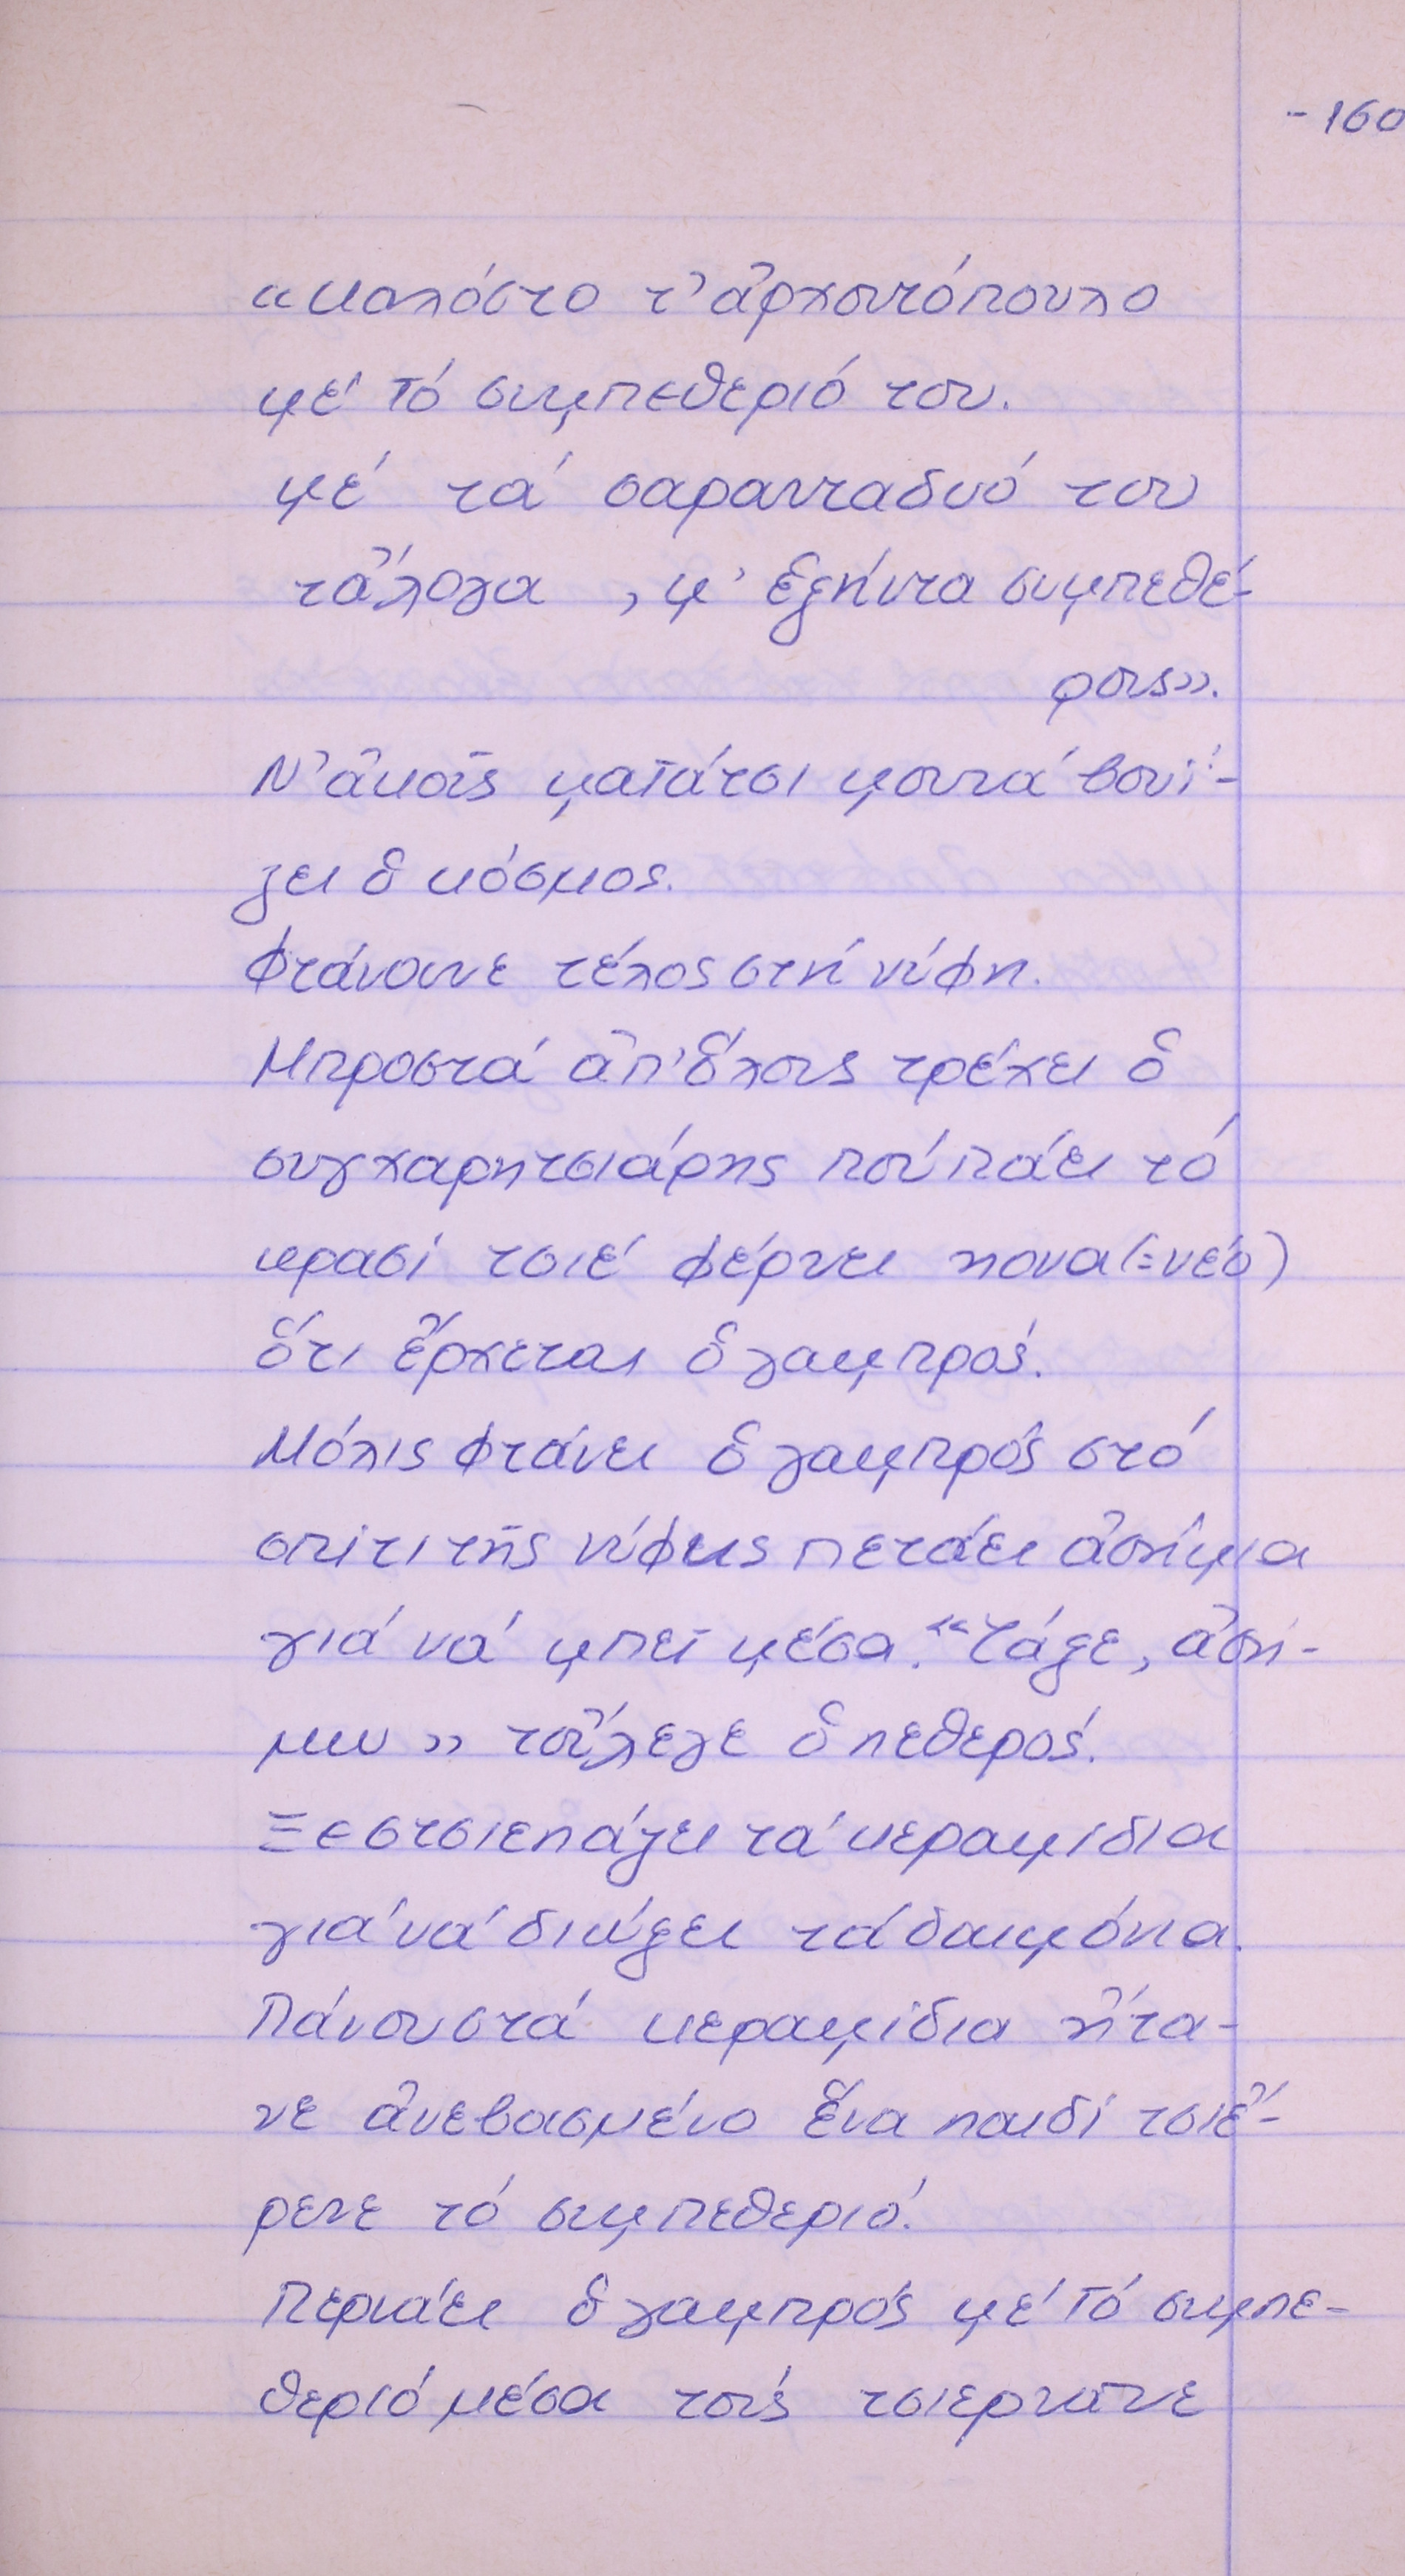 -160
«καλόστο τ' ἀρχοντόπουλο
μέ τό συμπεθεριό του.
μέ τά σαρανταδυό του
τἄλογα , μ' ἑξήντα συμπεθέ-
ρους».
Ν' ἀκοῖς ματάτσι μουνά βουΐ-
ζει ὁ κόσμος.
Φτάνουνε τέλος στή νύφη.
Μπροστά ἀπ' ὅλους τρέχει ὁ
συγχαρητσιάρης πού πάει τό
κρασί τσιέ φέρνει νονα (=νέο)
ὅτι ἔρχεται ὁ γαμπρός.
Μόλις φτάνει ὁ γαμπρός στό
σπίτι τῆς νύφης πετάει ἀσήμια
γιά νά μπεῖ μέσα. «Τάξε, ἀσή-
μωυ» τοὔλεγε ὁ πεθερός.
Ξεστσιεπάζει τά κεραμίδια
γιά νά διώξει τά δαιμόνια.
Πάνου στά κεραμίδια ἤτα-
νε ἀνεβασμένο ἕνα παιδί τσιἔ-
ρενε τό συμπεθεριό.
Περνάει ὁ γαμπρός μέ τό συμπε-
θεριό μέσα τούς τσιερνᾶνε